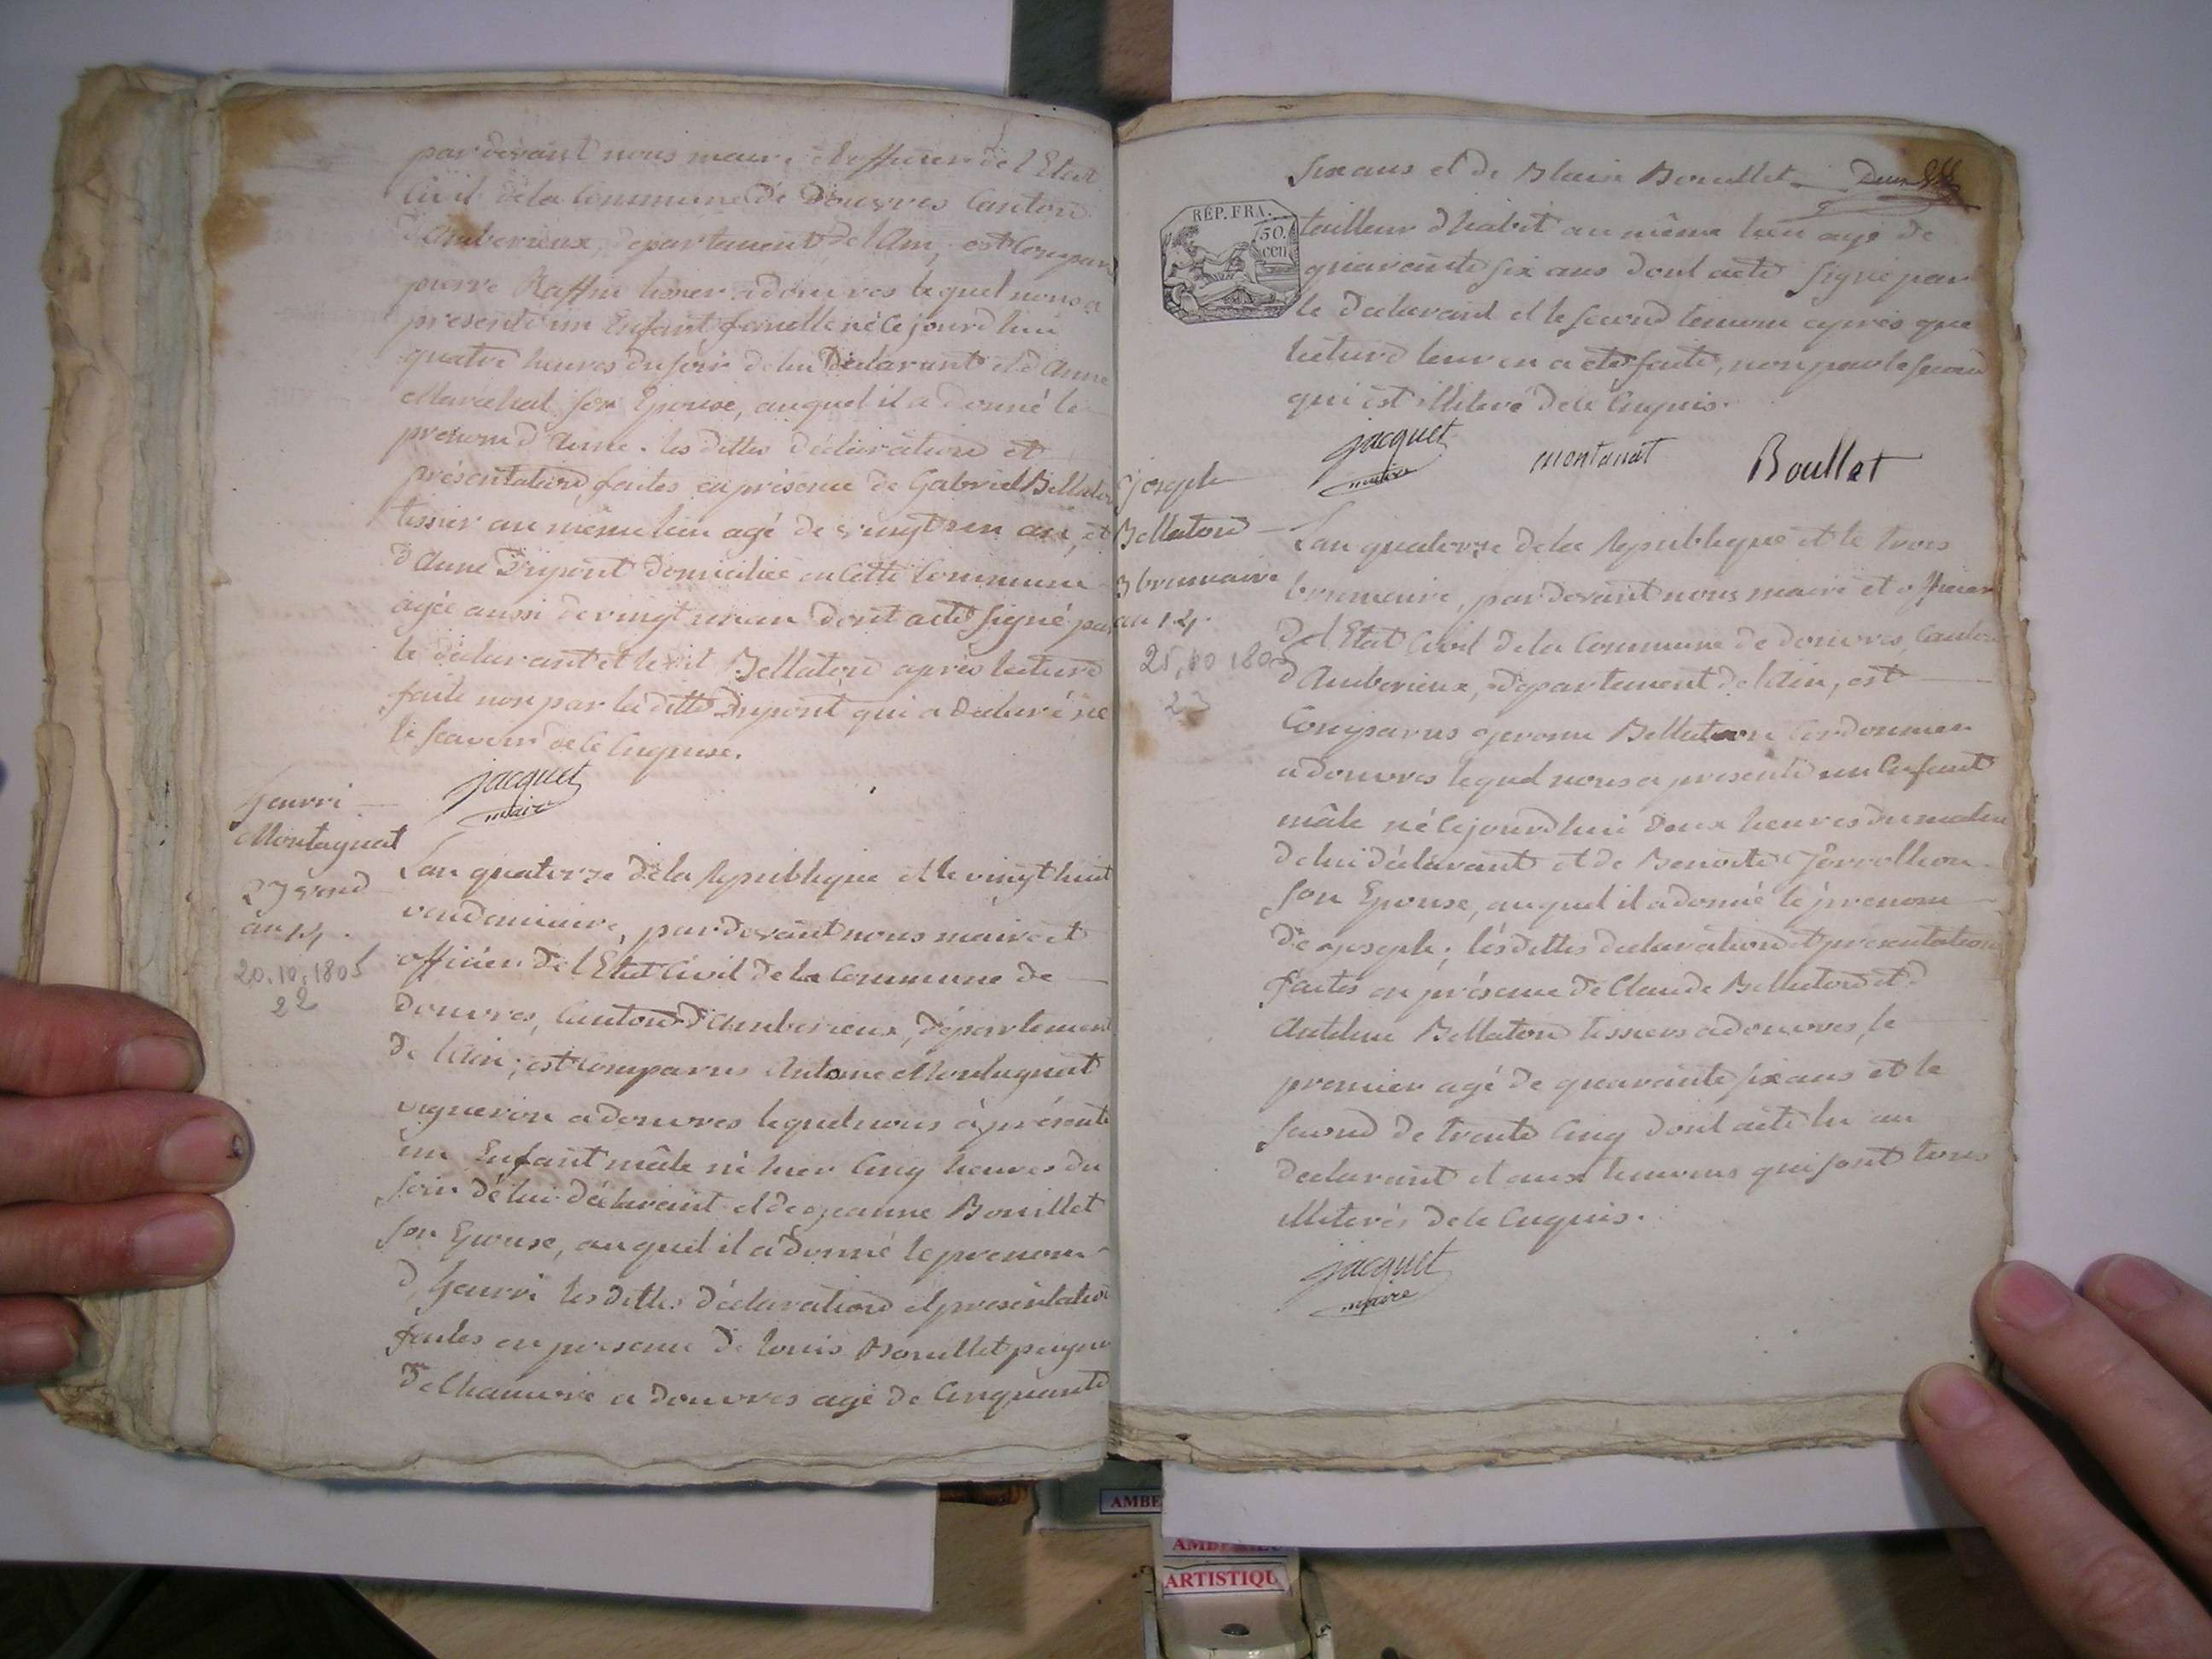 par devant nous maire et officier de l'Etat
Civil de la Commune de Douvres Canton
d'Amberieux, departement de l'Ain, est Compar
pierre Raffin tissier a douvres lequel nous a
presenté un Enfant femelle né Cejourdhui
quatre heures du soir de lui Déclarant et d'Anne
Maréchal son Epouse, auquel il a donné le
prenom d'Anne. les dittes déclaration et
présentation faites en présence de Gabriel Bellaton
tissier au même lieu agé de vingt un an, et
d'Anne Dupont domiciliée en Cette Commune
agée aussi de vingt un an dont acte signé par
le déclarant et le dit Bellaton après lecture
faite non par la ditte Dupont qui a declaré ne
le scavoir de ce Enquise.
jacquet
maire
henri
Montagnat
27 vend
an 14.
20.10.1805
22
L'an quatorze de la republique et le vingt huit
vendemiaire, par devant nous maire et
officier de l'Etat Civil de la Commune de
douvres, Canton d'Amberieux, département
de l'Ain; est Comparus Antoine Montagnat
vigneron a douvres lequel nous à présenté
un Enfant mâle né hier Cinq heures du
soir de lui déclarant et de jeanne Bouillet
son Epouse, auquel il a donné le prenom
d'henri les dittes déclaration et présentation
faites en presence de louis Bouillet peigneur
de Chanvre a douvres agé de Cinquante
six ans et de Blaise Bouillet
RÉP. FRA.
50.
CEN
tailleur d'habit au même lieu agé de
quarante six ans dont acte signé par
le declarant et le second temoin après que
lecture leur en a eté faite, non par le premier
qui est illiteré de ce Enquis.
jacquet
maire
montanat
Boullet
joseph
Bellaton
3 brumaire
an 14.
25,10 1805
23
L'an quatorze de la republique et le trois
brumaire, par devant nous maire et officier
de l'Etat Civil de la Commune de douvres, Canton
d'Amberieux, departement de l'Ain, est
Comparus jerome Bellaton Cordonnier
a douvres lequel nous a presenté un Enfant
mâle né Cejourdhui deux heures du matin
de lui déclarant et de Benoite
son Epouse, auquel il a donné le prenom
de joseph; les dittes declaration et presentation
faites en présence de Claude Bellaton et d
Antelme Bellaton tissiers a douvres, le
premier agé de quarante six ans et le
second de trente Cinq dont acte lu au
declarant et aux temoins qui sont tous
illiterés de ce Enquis.
jacquet
maire
AMBE
ARTISTIQU